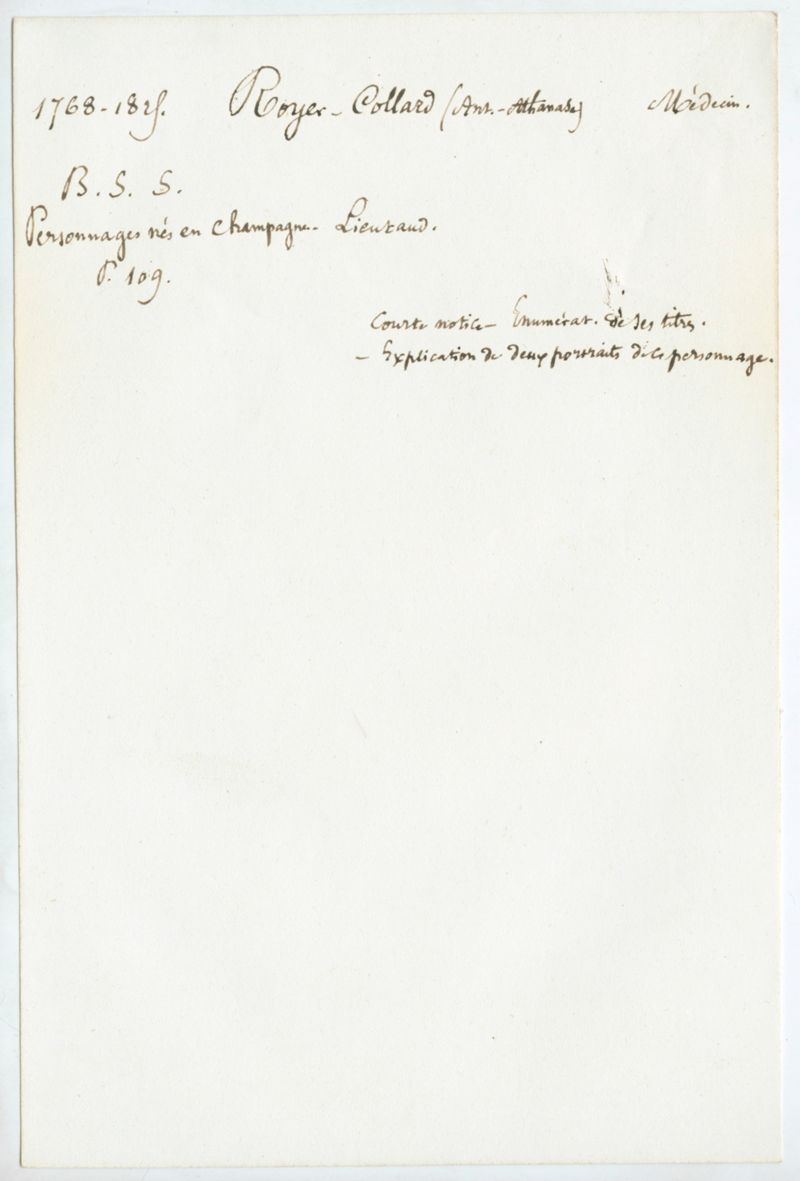 1768-1825. Royer-Collard (Ant.-Athanase) Médecin.
B. S. S.
Personnages nés en Champagne - Lieutaud.
P. 109.
Courte notice - Enumérat. de ses titres.
- Explication de deux portraits de ce personnage.